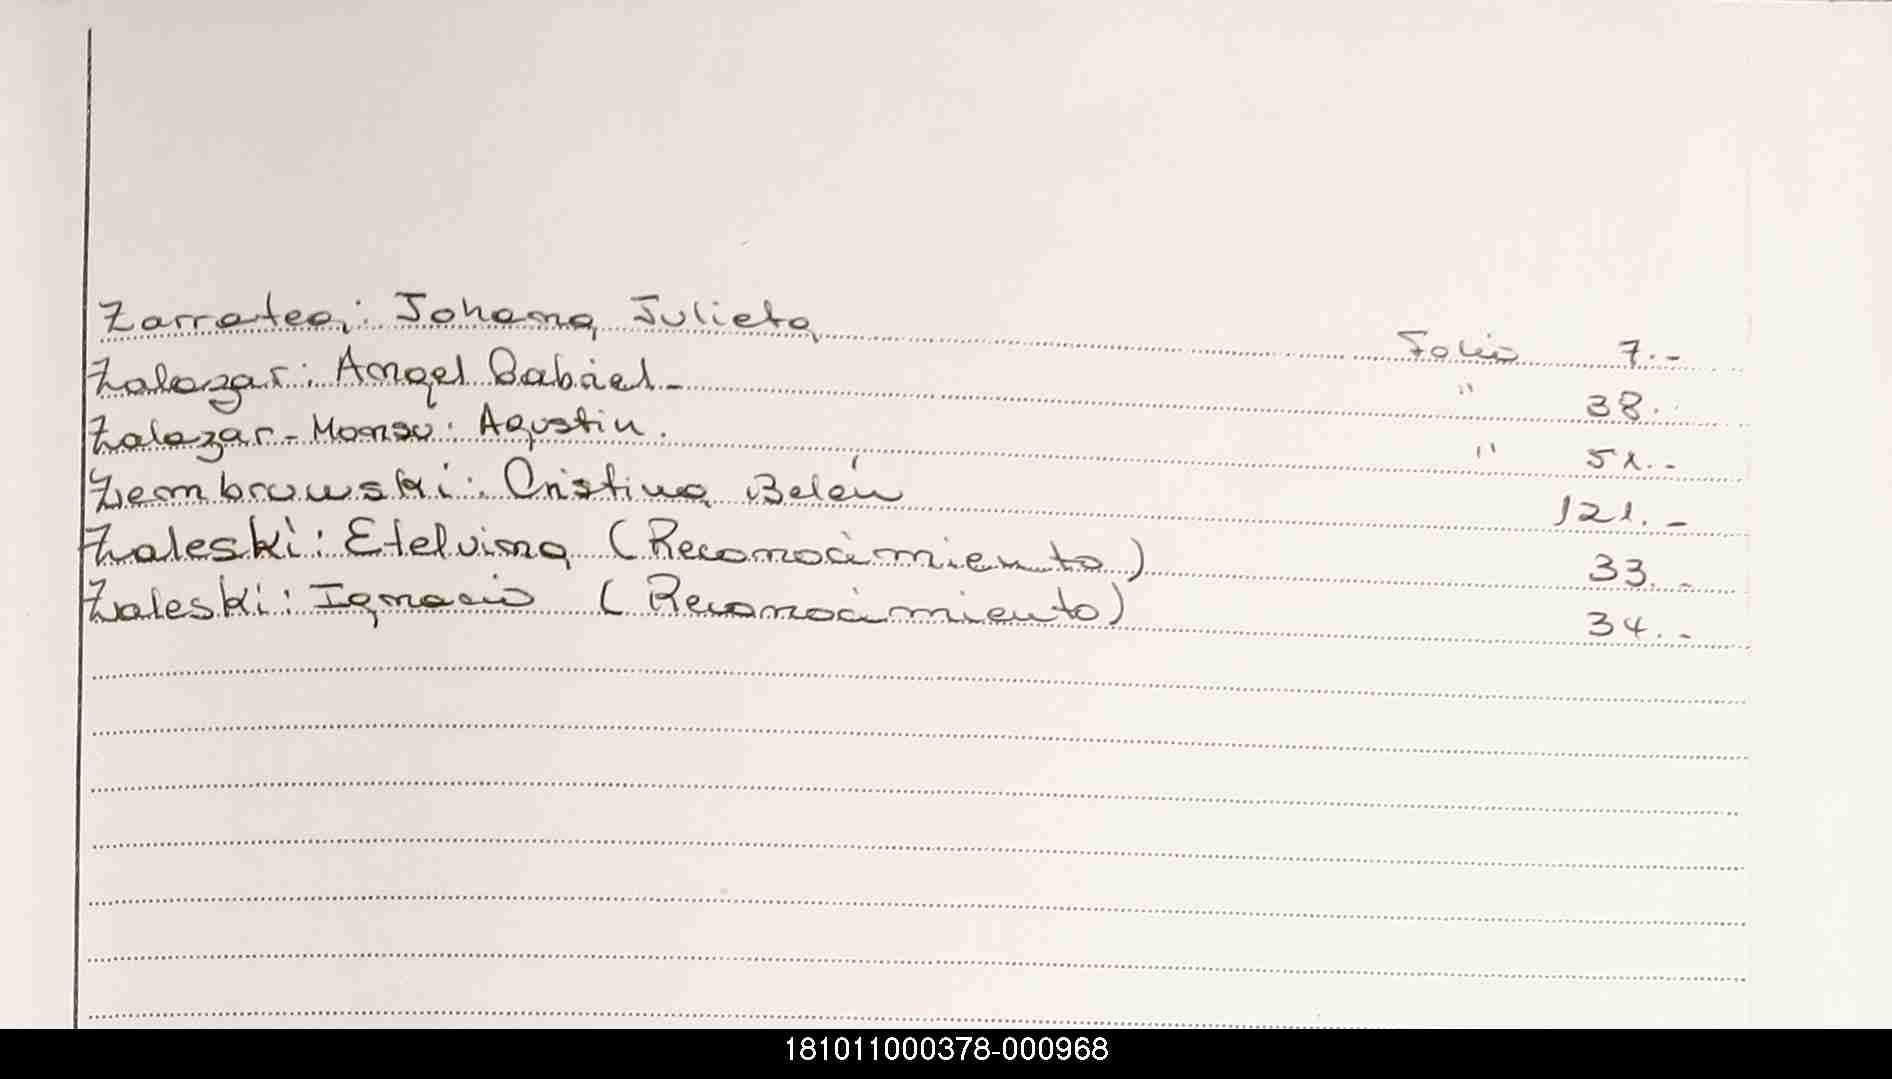 Zarratea: Johana Julieta Folio 7.-
Zalazar: Angel Gabriel.- " 38.-
Zalazar-Monsu: Agustin. " 51.-
Zembrowski: Cristina Belén 121.-
Zaleski: Etelvina (Reconocimiento) 33.-
Zaleski: Ignacio (Reconocimiento) 34.-
181011000378-000968